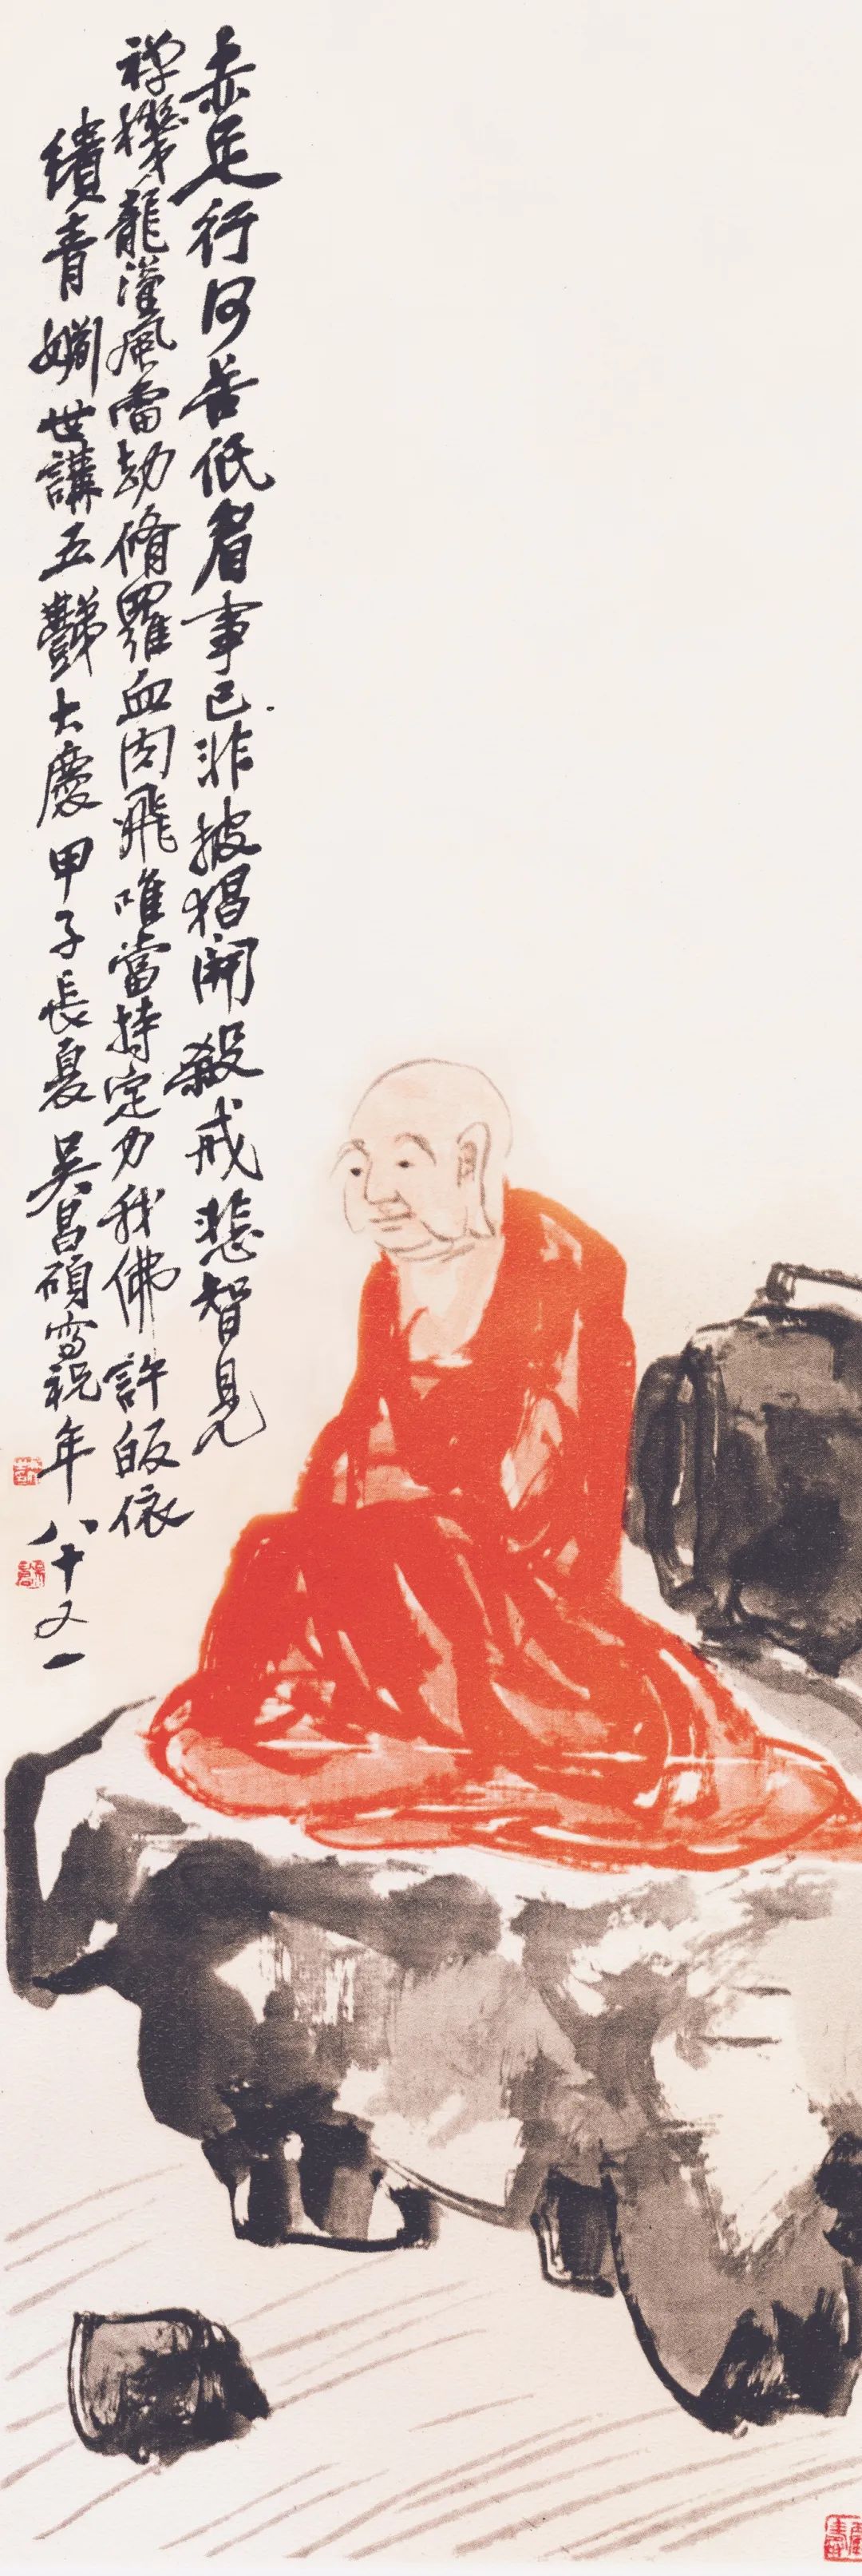 赤足行何苦低眉事已非披猖開殺戒悲智見
禅機龍漢風雷劫脩羅血肉飛唯當持定力我佛許皈依
績青嫻世講五豑大慶甲子長夏吳昌碩寫祝年八十又一